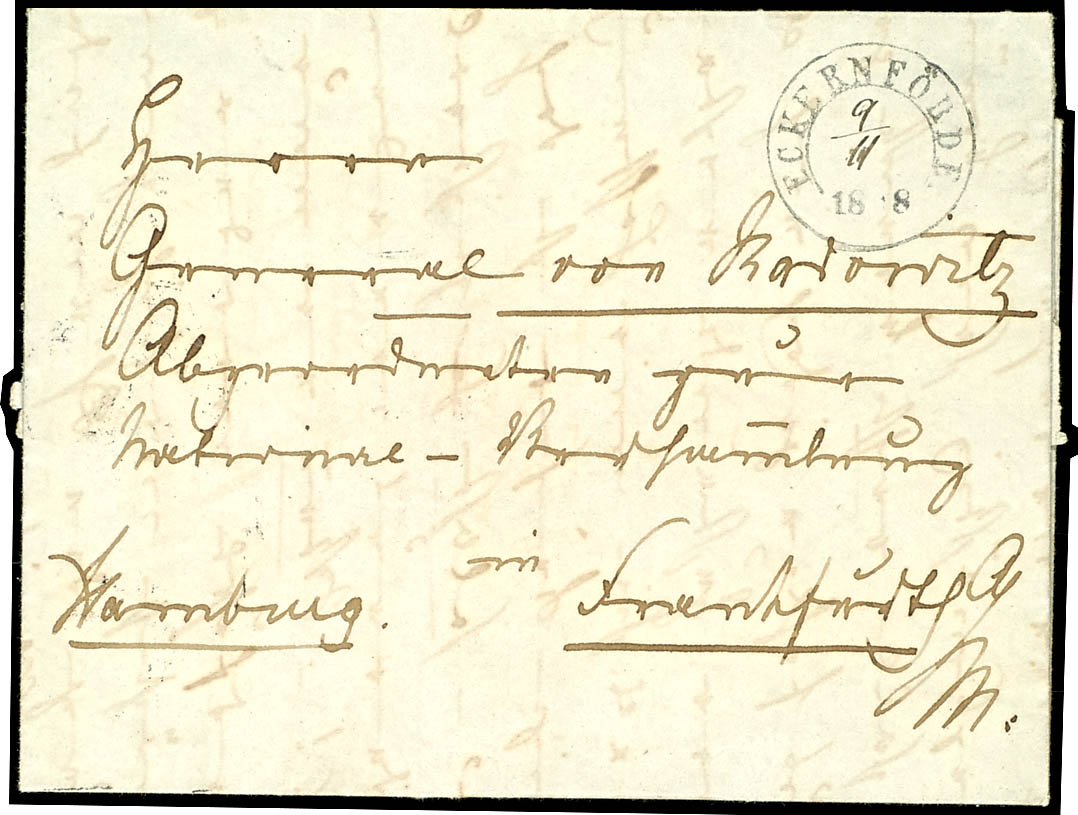 ECKERNFÖRDE
9/11
18 8
Herrn
General von Radowitz
Abgeordneter zur
National-Versam̄lung
in
Hamburg. Frankfurth a/M.